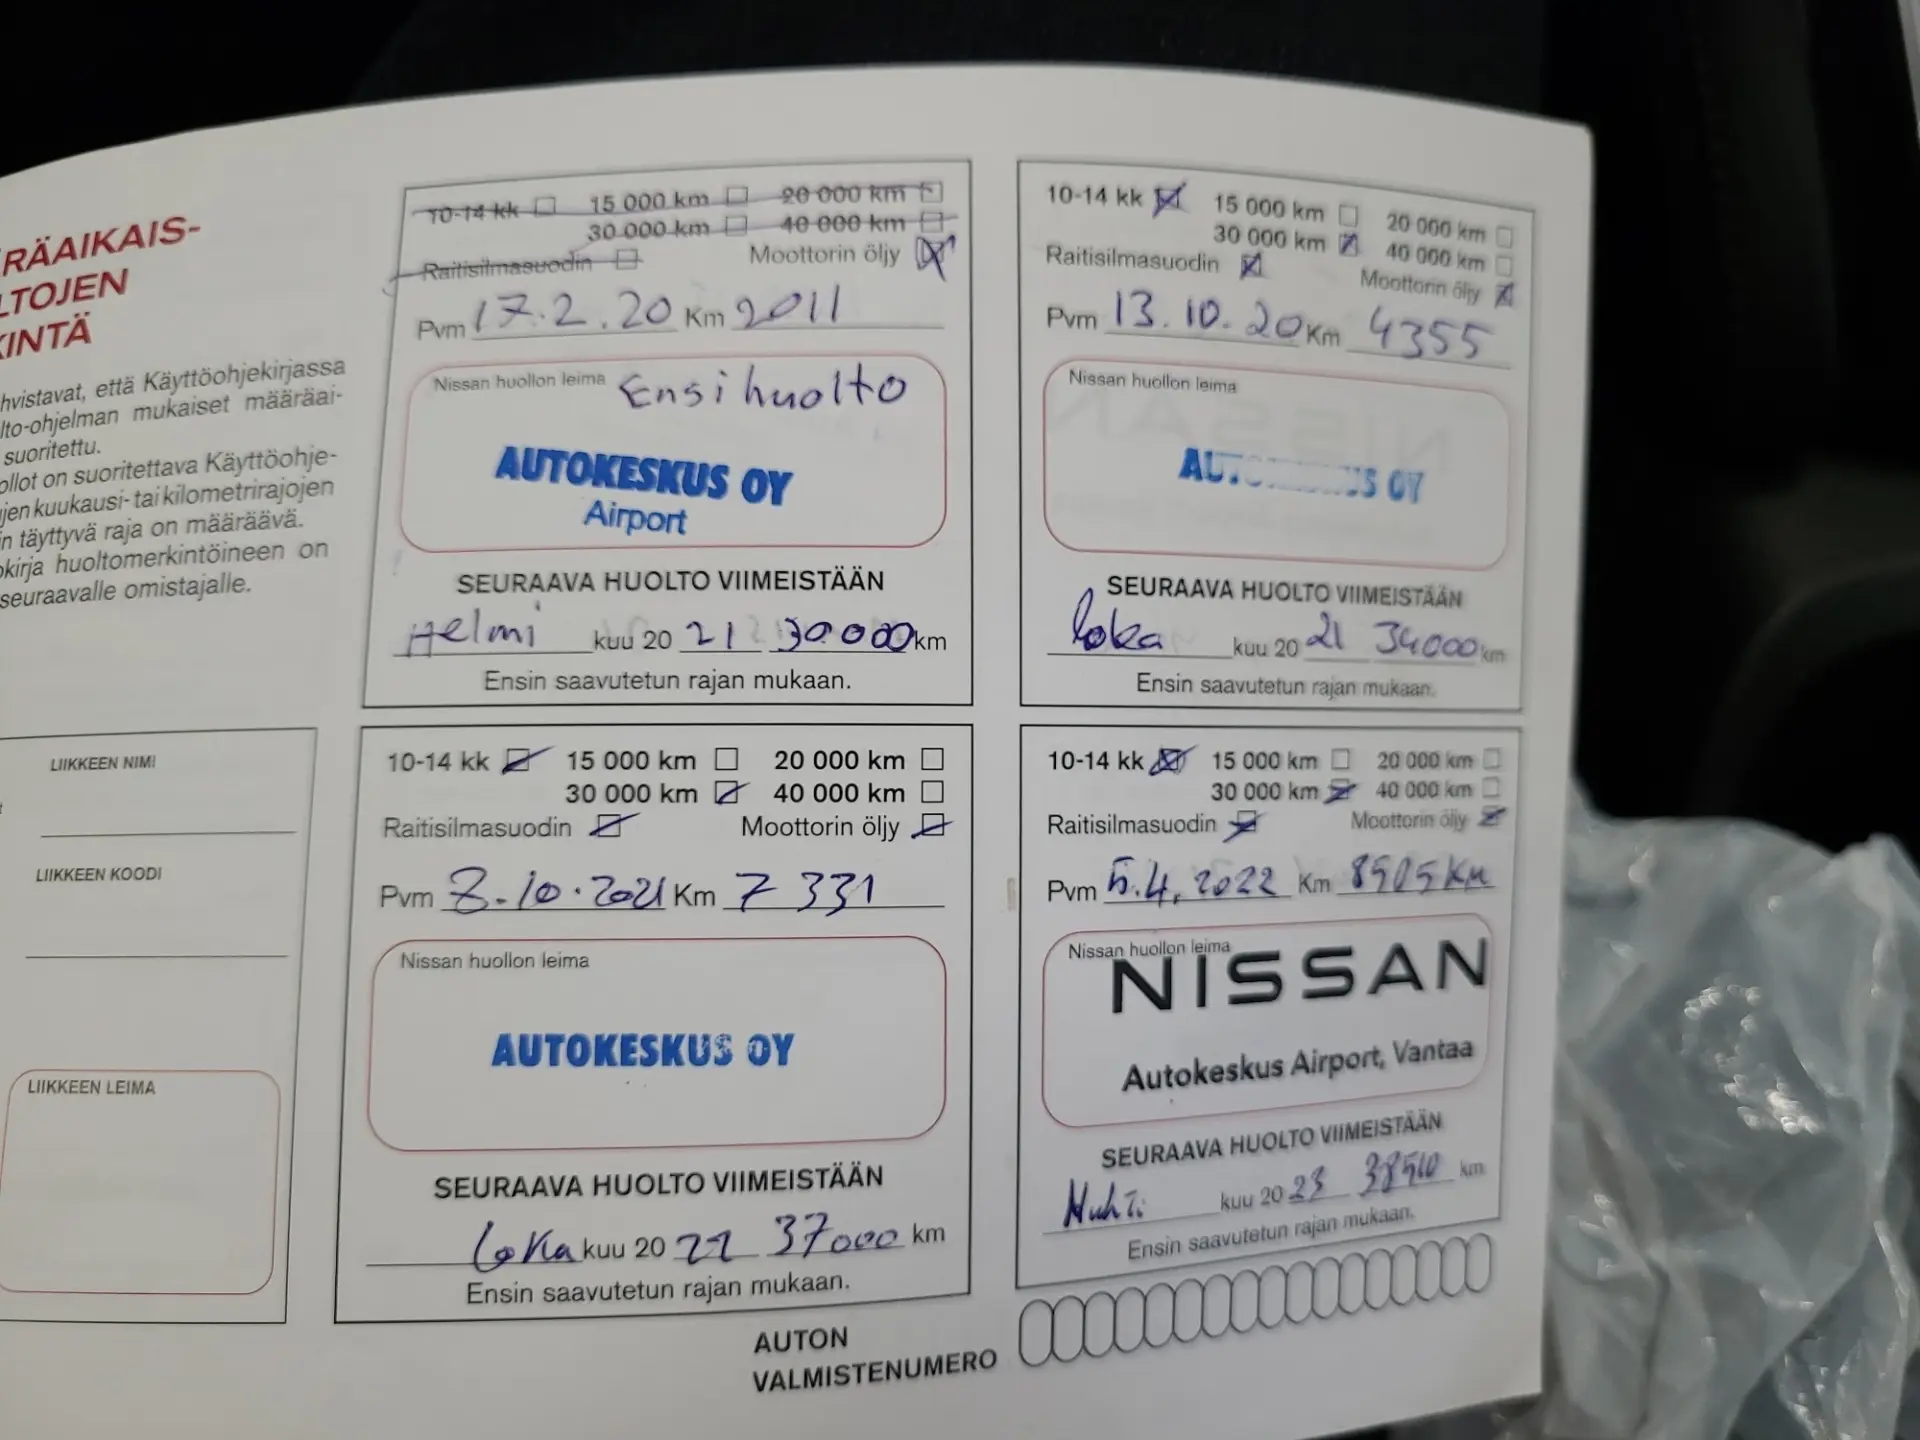 RÄAIKAIS-
LTOJEN
KINTÄ
hvistavat, että Käyttöohjekirjassa
lto-ohjelman mukaiset määräai-
suoritettu.
ollot on suoritettava Käyttöohje-
jen kuukausi- tai kilometrirajojen
in täyttyvä raja on määräävä.
okirja huoltomerkintöineen on
seuraavalle omistajalle.
LIIKKEEN NIMI
LIIKKEEN KOODI
LIIKKEEN LEIMA
10-14 kk 15 000 km 20 000 km
30 000 km 40 000 km
Raitisilmasuodin Moottorin öljy
Pvm 17.2.20 Km 2011
Nissan huollon leima Ensihuolto
AUTOKESKUS OY
Airport
SEURAAVA HUOLTO VIIMEISTÄÄN
Helmi kuu 20 21 30000 km
Ensin saavutetun rajan mukaan.
10-14 kk 15 000 km 20 000 km
30 000 km 40 000 km
Raitisilmasuodin Moottorin öljy
Pvm 13.10.20 Km 4355
Nissan huollon leima
AUTOKESKUS OY
SEURAAVA HUOLTO VIIMEISTÄÄN
loka kuu 20 21 34000 km
Ensin saavutetun rajan mukaan.
10-14 kk 15 000 km 20 000 km
30 000 km 40 000 km
Raitisilmasuodin Moottorin öljy
Pvm 8.10.2021 Km 7331
Nissan huollon leima
AUTOKESKUS OY
SEURAAVA HUOLTO VIIMEISTÄÄN
loka kuu 20 22 37000 km
Ensin saavutetun rajan mukaan.
10-14 kk 15 000 km 20 000 km
30 000 km 40 000 km
Raitisilmasuodin Moottorin öljy
Pvm 5.4.2022 Km
Nissan huollon leima
NISSAN
Autokeskus Airport, Vantaa
SEURAAVA HUOLTO VIIMEISTÄÄN
Huhti kuu 20 23 km
Ensin saavutetun rajan mukaan.
AUTON
VALMISTENUMERO